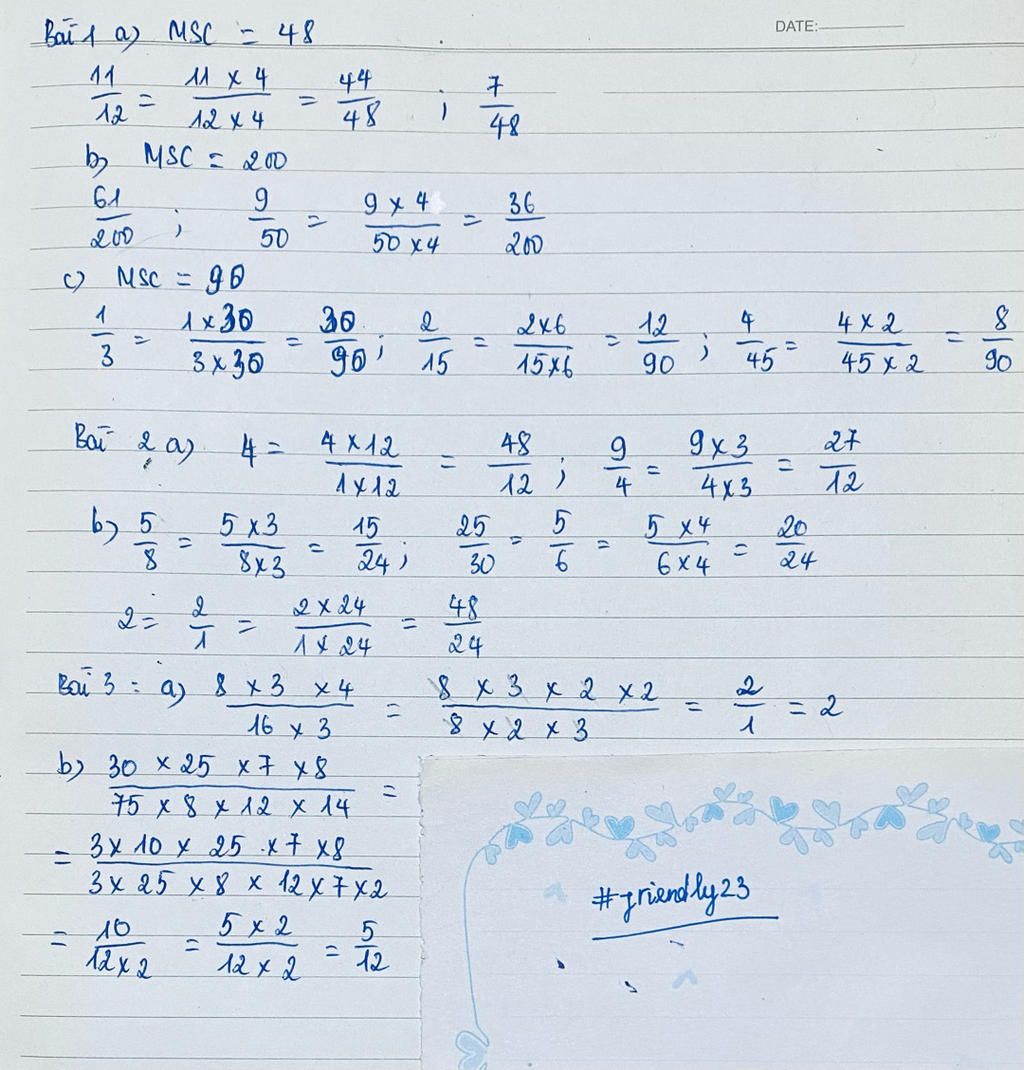 DATE:
Bài 1 a) MSC = 48
11/12 = 11 x 4/12 x 4 = 44/48 ; 7/48
b) MSC = 200
61/200 ; 9/50 = 9 x 4/50 x 4 = 36/200
c) MSC = 90
1/3 = 1 x 30/3 x 30 = 30/90 ; 2/15 = 2x6/15x6 = 12/90 ; 4/45 = 4 x 2/45 x 2 = 8/90
Bài 2 a) 4 = 4 x 12/1 x 12 = 48/12 ; 9/4 = 9 x 3/4 x 3 = 27/12
b) 5/8 = 5 x 3/8 x 3 = 15/24 ; 25/30 = 5/6 = 5 x 4/6 x 4 = 20/24
2 = 2/1 = 2 x 24/1 x 24 = 48/24
Bài 3 : a) 8 x 3 x 4/16 x 3 = 8 x 3 x 2 x 2/8 x 2 x 3 = 2/1 = 2
b) 30 x 25 x 7 x 8/75 x 8 x 12 x 14 =
= 3 x 10 x 25 x 7 x 8/3 x 25 x 8 x 12 x 7 x 2
= 10/12 x 2 = 5 x 2/12 x 2 = 5/12
#friendly23